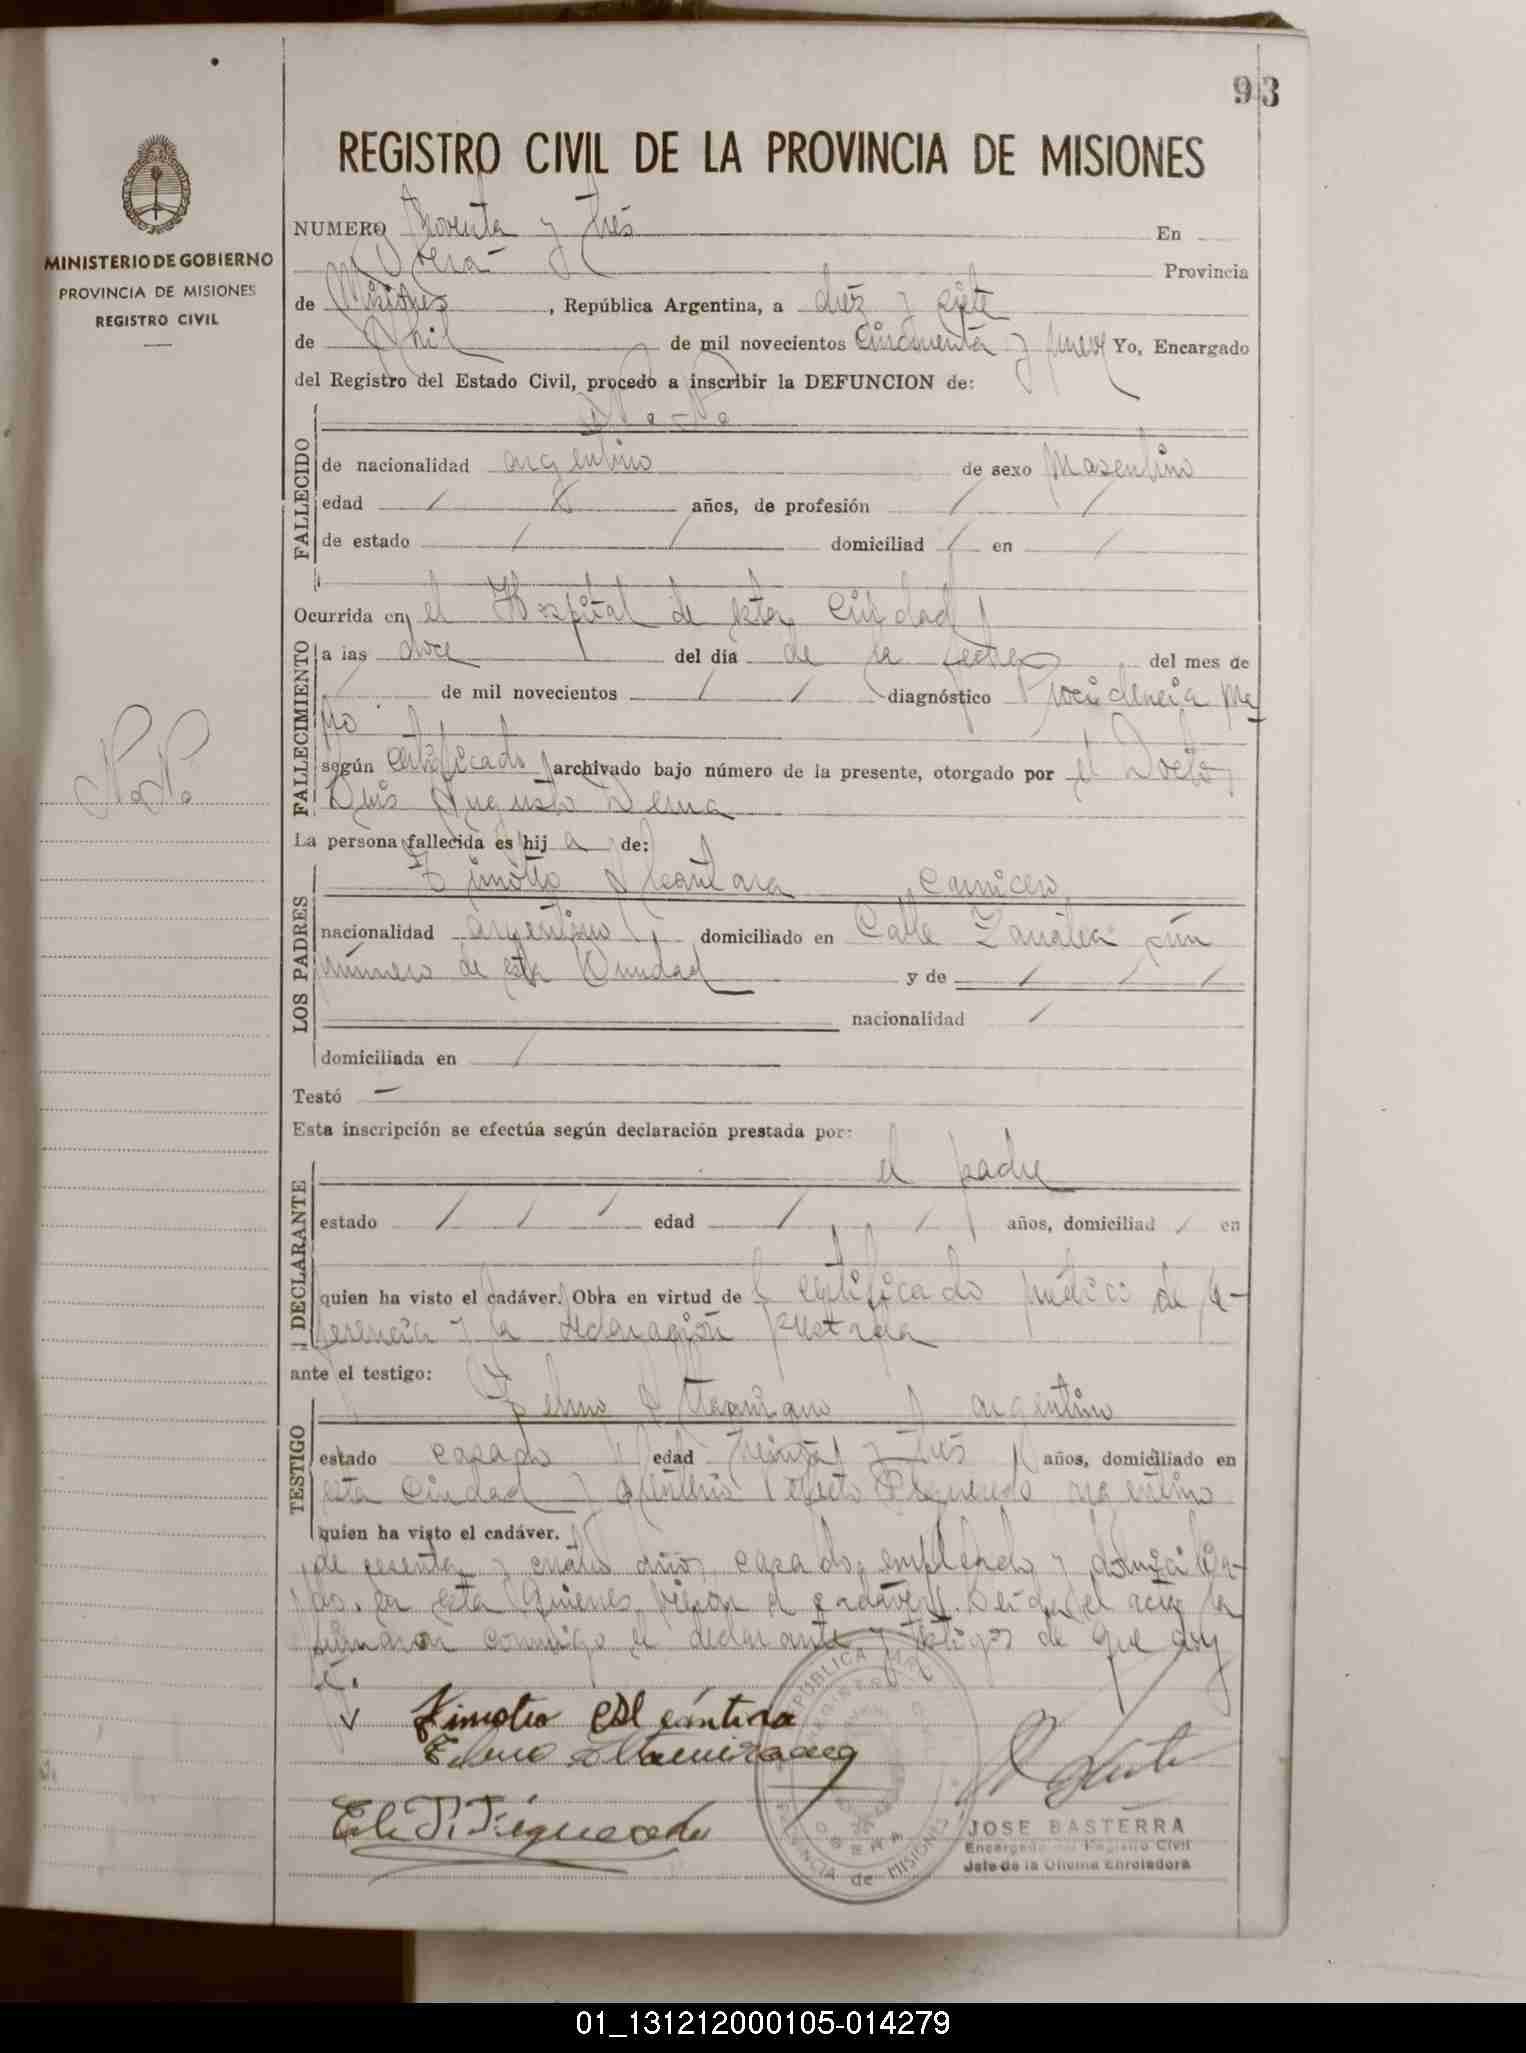 93
REGISTRO CIVIL DE LA PROVINCIA DE MISIONES
MINISTERIO DE GOBIERNO
PROVINCIA DE MISIONES
REGISTRO CIVIL
NUMERO Noventa y tres En
Oberá Provincia
de Misiones, República Argentina, a diez y siete
de Abril de mil novecientos Cincuenta y nueve Yo, Encargado
del Registro del Estado Civil, procedo a inscribir la DEFUNCION de:
N.N.
FALLECIDO
de nacionalidad argentino de sexo Masculino
edad años, de profesión
de estado domiciliad en
Ocurrida en el Hospital de esta Ciudad
FALLECIMIENTO
a las doce del día de la fecha del mes de
de mil novecientos diagnóstico Procidencia
según certificado archivado bajo número de la presente, otorgado por el Doctor
Luis Augusto
N.N.
La persona fallecida es hij a de:
LOS PADRES
Timoteo Alcantara Carnicero
nacionalidad argentino domiciliado en Calle sin
número de esta Ciudad y de
nacionalidad
domiciliada en
Testó —
Esta inscripción se efectúa según declaración prestada por:
DECLARANTE
el padre
estado edad años, domiciliad en
quien ha visto el cadáver. Obra en virtud de certificado médico de re-
ferencia y la declaración prestada
ante el testigo:
TESTIGO
Telmo Altamirano argentino
estado casado edad treinta y tres años, domiciliado en
esta Ciudad y Figueredo argentino
quien ha visto el cadáver.
de y cuatro años, casado, empleado y domicilia-
do en esta quienes vieron el cadáver. Leida el acta la
firmaron conmigo el declarante y testigos de que doy
fé.
Timoteo Alcántara
Telmo Altamirano
Figueredo
REPUBLICA
OBERA
PROVINCIA de MISIONES
JOSE BASTERRA
Encargado del Registro Civil
Jefe de la Oficina Enroladora
01_131212000105-014279